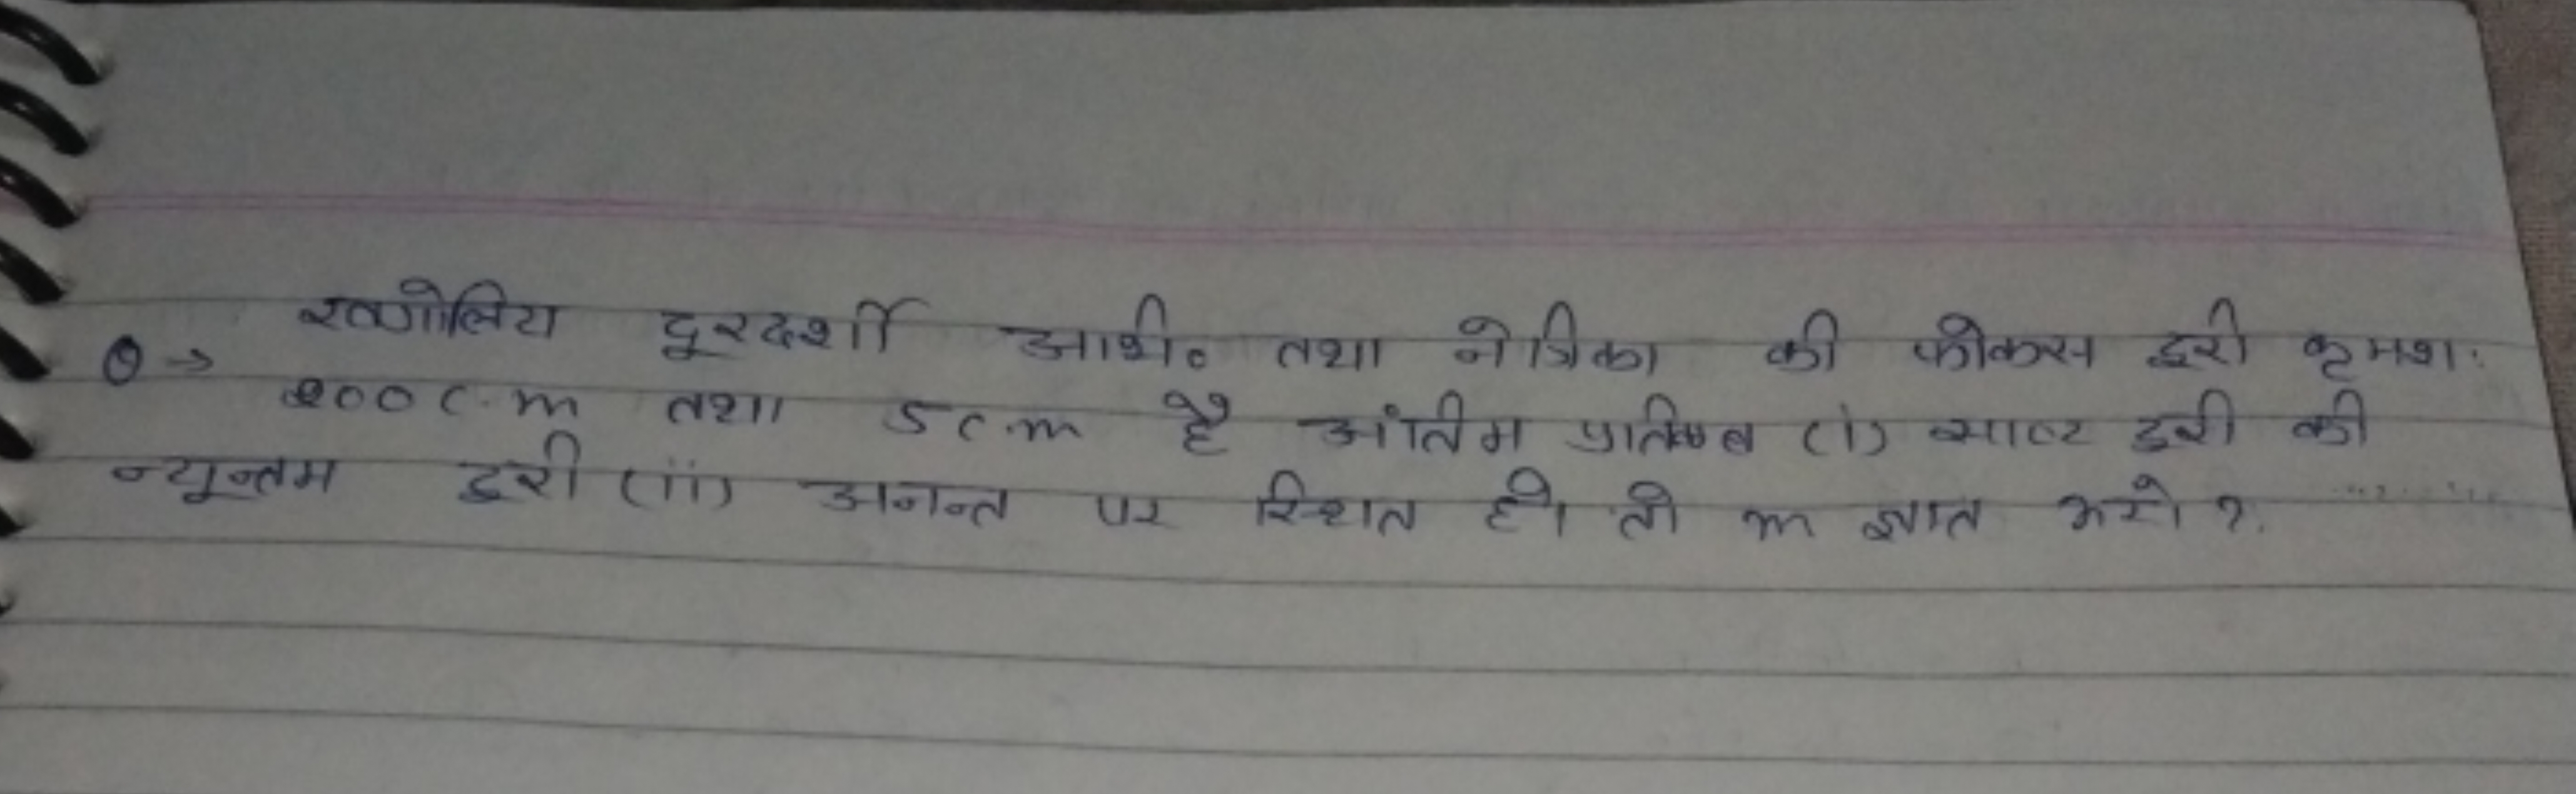 खगोलिय दूरदर्शी आभि० तथा नेत्रिका की फोकस दूरी कृमश:
Q → 200 c.m तथा 5 c.m है अंतिम प्रतिबिम्ब (i) स्पष्ट दूरी की
न्यून्तम दूरी (ii) अनन्त पर स्थित हो तो m ज्ञात करो ?